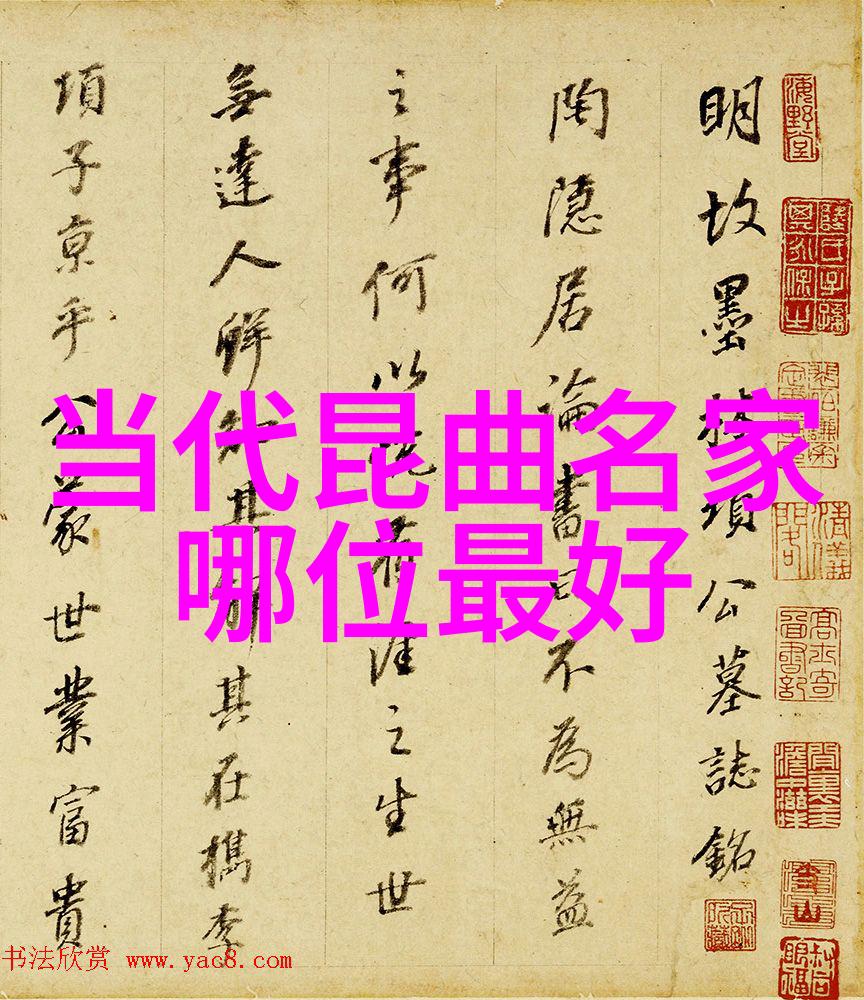 明故墨林項公墓誌銘
陶隱居論書曰不為無益
之事何以悦有涯之生世
無達人鮮知其解其在檇李
項子京乎公蒙世業富貴
海野堂
当代昆曲名家
哪位最好
书法欣赏 www.yac8.com